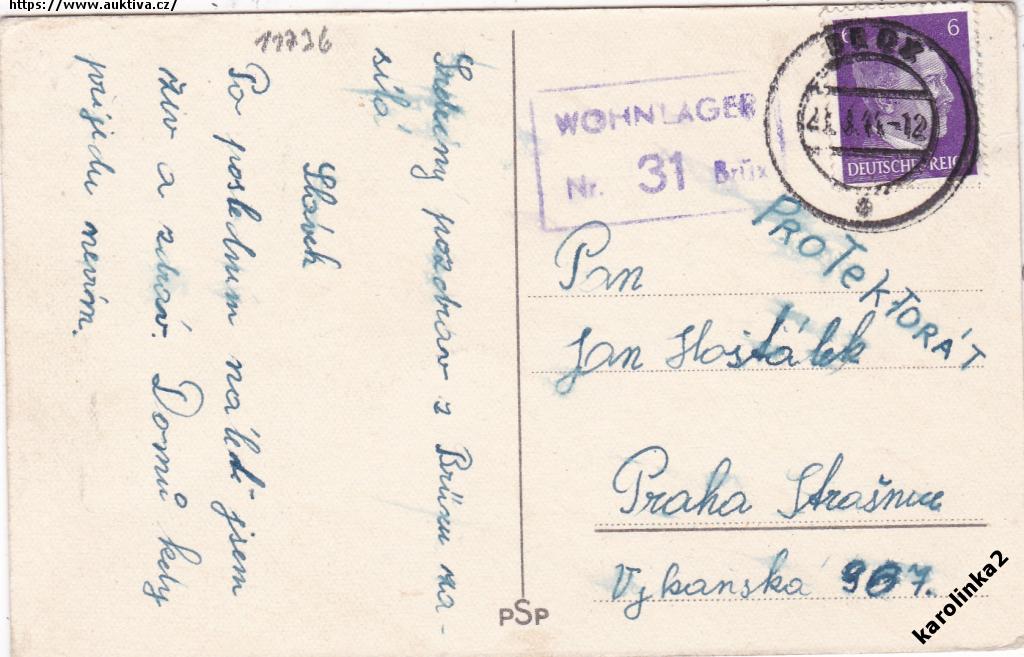 https://www.auktiva.cz/
11736
Srdečný pozdrav z Brüxu za-
sílá
Slávek
Po posledním náletě jsem
živ a zdráv. Domů kdy
přijedu nevím.
WOHNLAGER
Nr. 31 Brüx
BRÜX
6
DEUTSCHES REICH
PROTEKTORÁT
Pan
Jan Hošťálek
Praha Strašnice
Vykáňská 967.
PSP
karolinka2